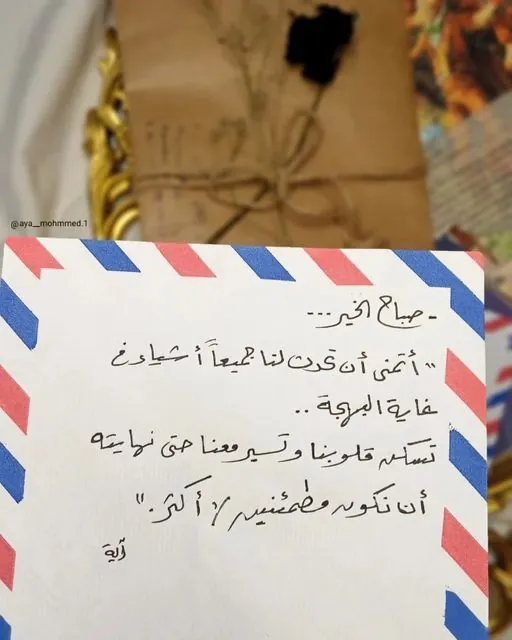 @aya__mohmmed.1
- صباح الخير...
" أتمنى أن تحدث لنا جميعاً أشياء في
غاية البهجة ..
تسكن قلوبنا وتسير معنا حتى نهايته
أن نكون مطمئنين // أكثر. "
آية